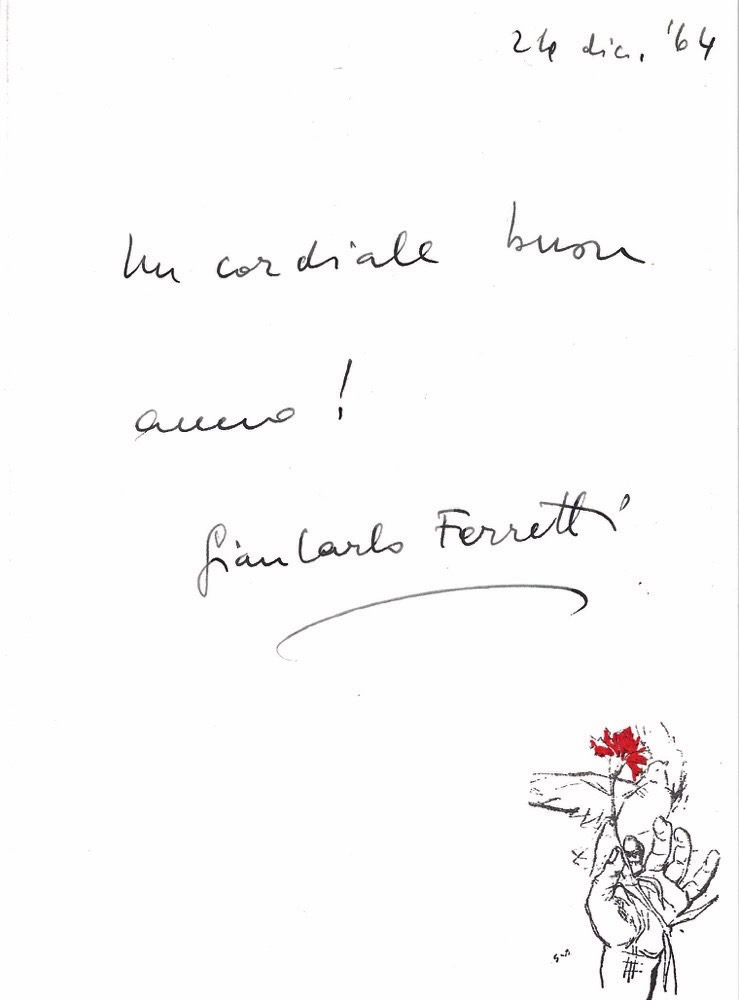 24 dic. '64
Un cordiale buon
anno!
Giancarlo Ferretti